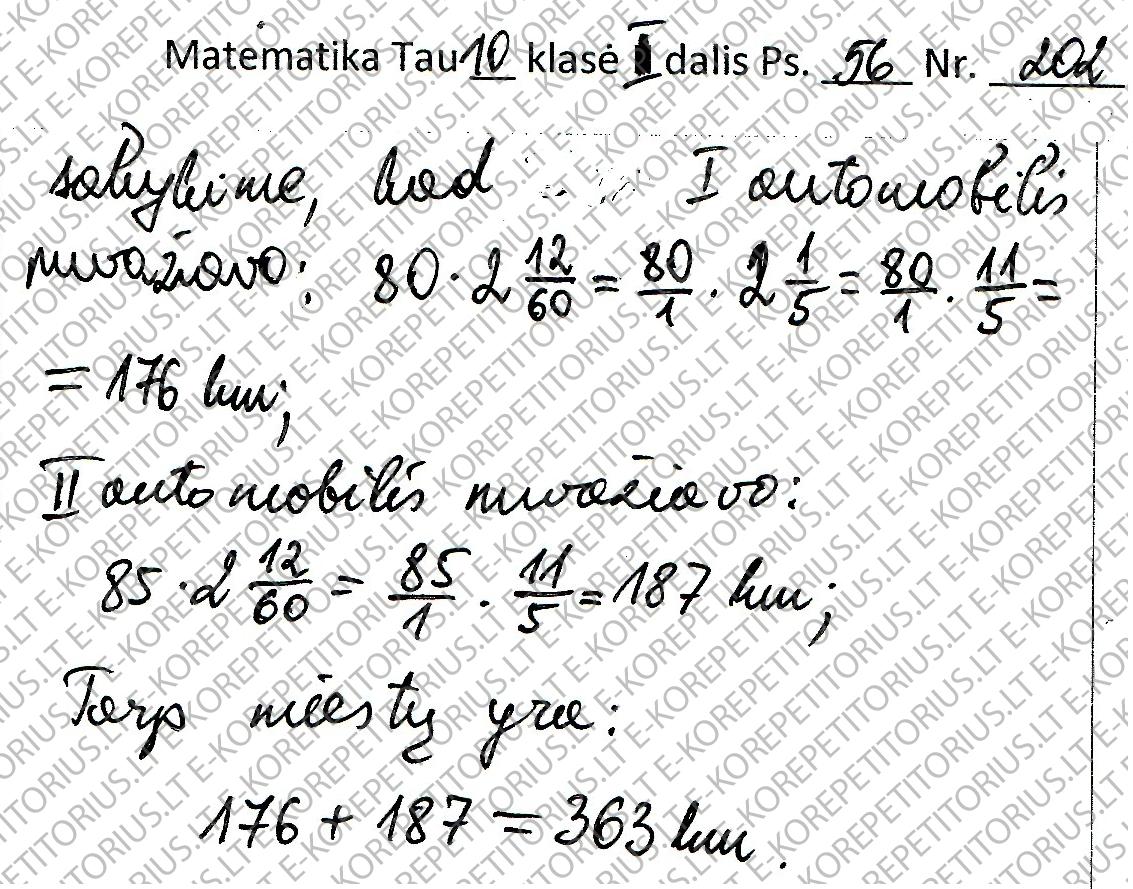 Matematika Tau 10 klasė I dalis Ps. 56 Nr. 202
sakykime, kad I automobilis
nuvažiavo: 80 · 2 12/60 = 80/1 · 2 1/5 = 80/1 · 11/5 =
= 176 km;
II automobilis nuvažiavo:
85 · 2 12/60 = 85/1 · 11/5 = 187 km;
Tarp miestų yra:
176 + 187 = 363 km.